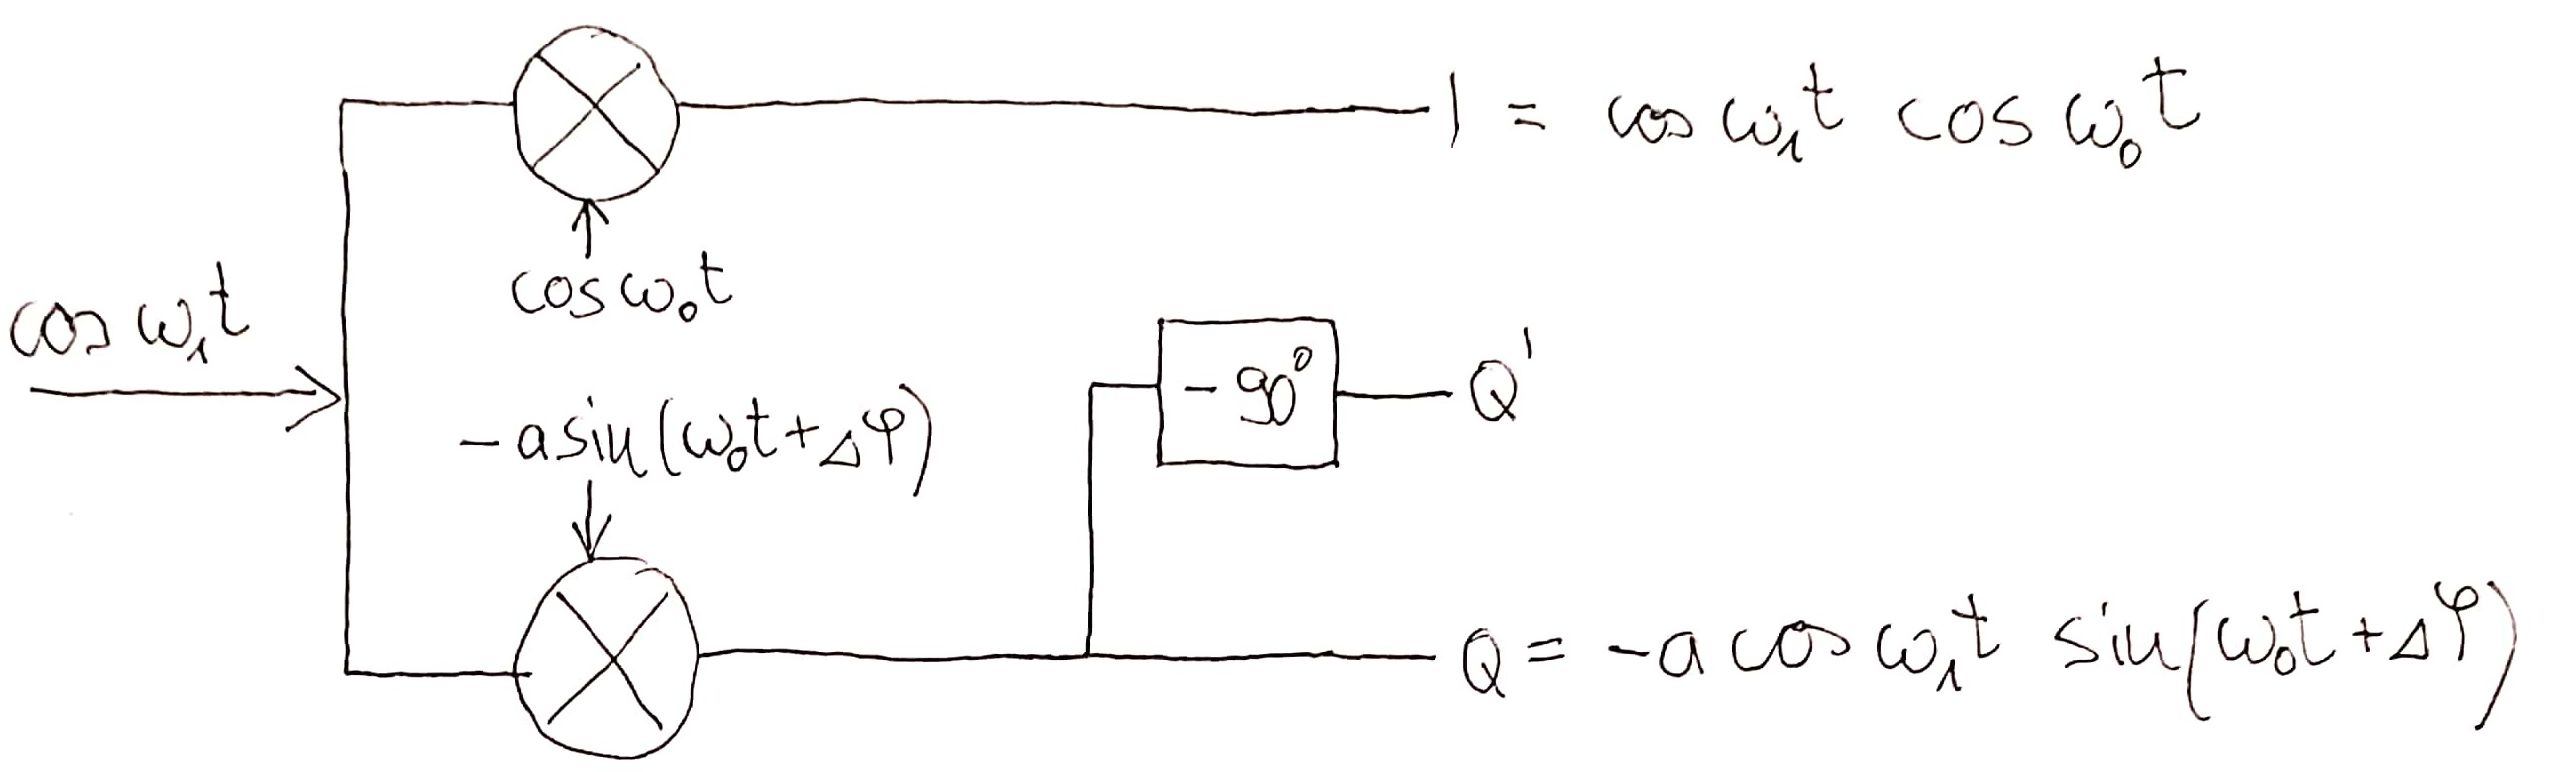 I = cos ω₁t cos ω₀t
cos ω₀t
cos ω₁t
-a sin(ω₀t + Δφ)
-90°
Q'
Q = -a cos ω₁t sin(ω₀t + Δφ)